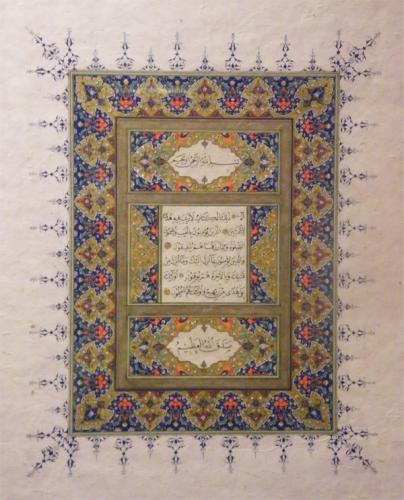 بسم الله الرحمن الرحيم
الم ذلك الكتاب لا ريب فيه هدى
للمتقين الذين يؤمنون بالغيب ويقيمون
الصلوة ومما رزقناهم ينفقون
والذين يؤمنون بما انزل اليك وما انزل من
قبلك وبالاخرة هم يوقنون اولئك
على هدى من ربهم واولئك هم المفلحون
صدق الله العظيم